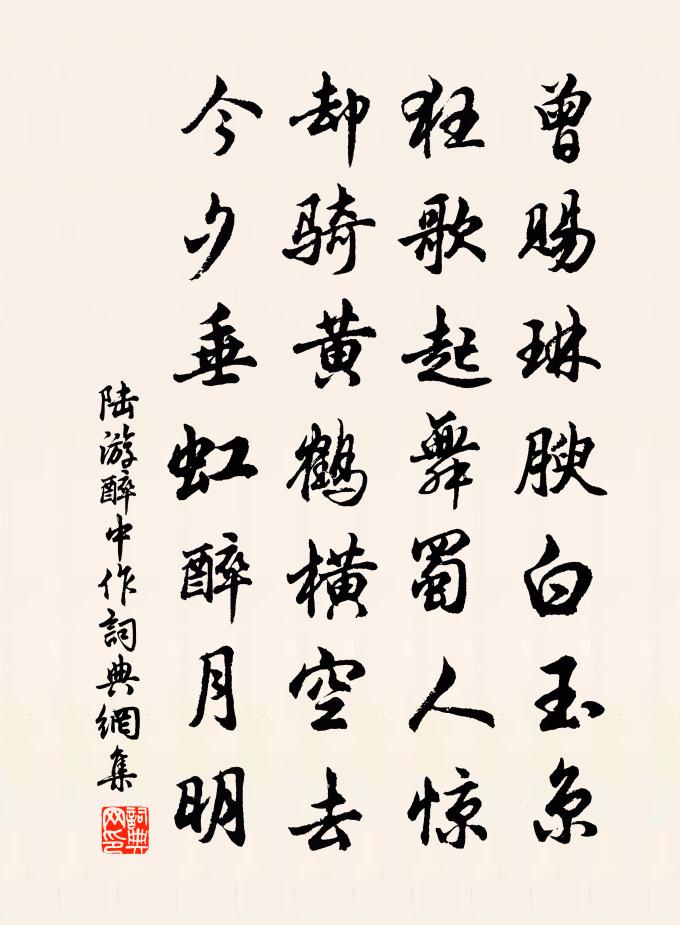 曾赐琳腴白玉京
狂歌起舞蜀人惊
却骑黄鹤横空去
今夕垂虹醉月明
陆游醉中作詞典網集
詞典網印